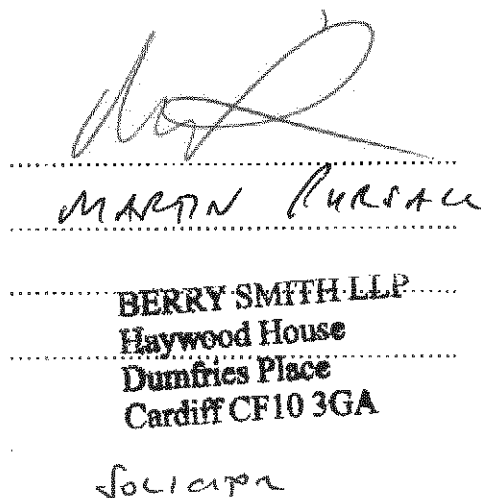 MARTIN PURSALL
BERRY SMITH LLP
Haywood House
Dumfries Place
Cardiff CF10 3GA
Solicitor